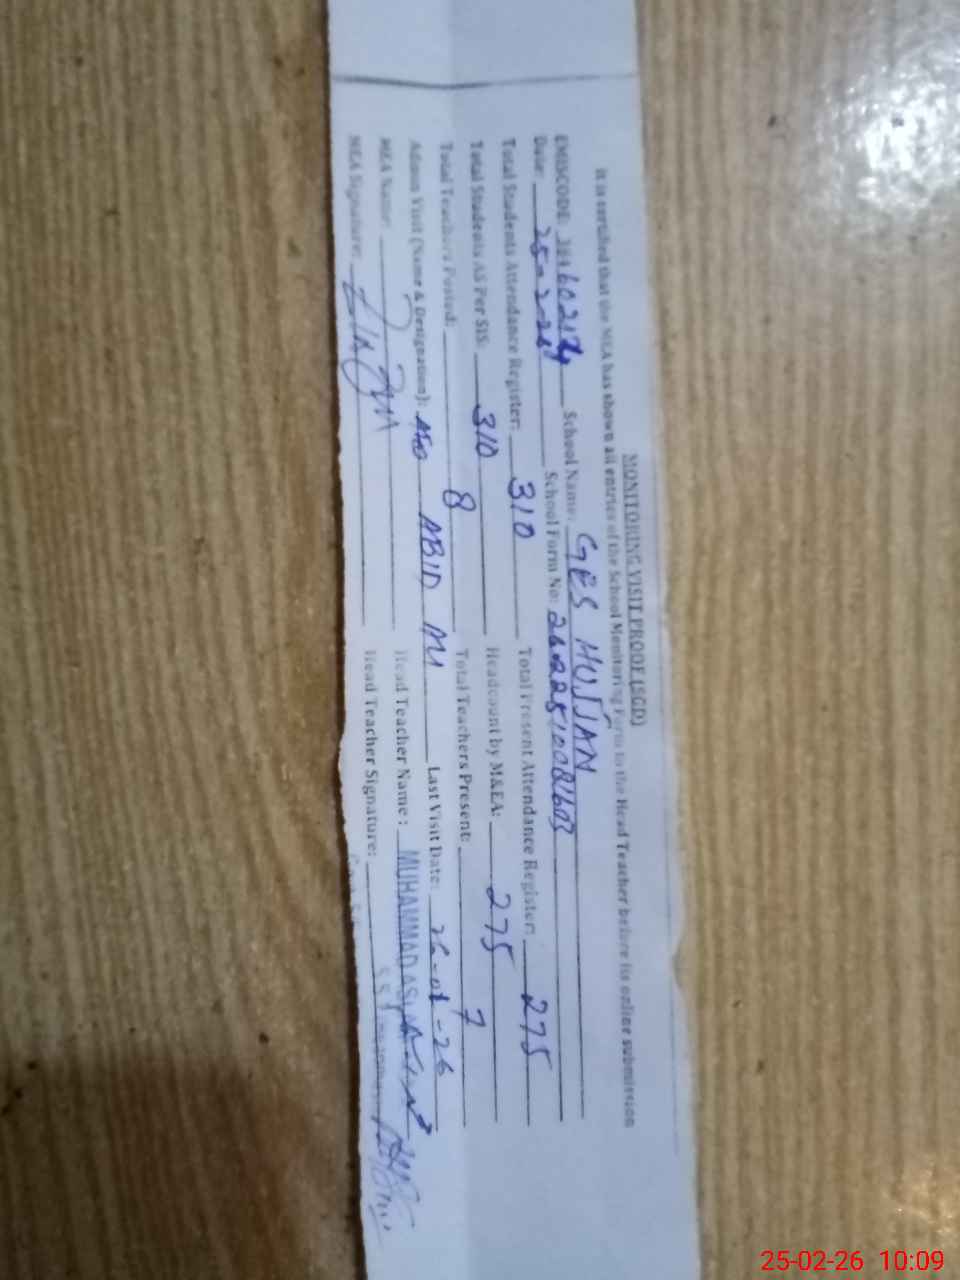 MONITORING VISIT PROOF (SGD)
It is certified that the MEA has shown all entries of the School Monitoring Form to the Head Teacher before its online submission
EMISCODE: School Name: GES HUJJAN
Date: 25-2-26 School Form No:
Total Students Attendance Register: 310 Total Present Attendance Register: 275
Total Students AS Per SIS: 310 Headcount by M&EA: 275
Total Teachers Posted: 8 Total Teachers Present: 7
Admin Visit (Name & Designation): AEO ABID Last Visit Date: 26-01-26
MEA Name: Head Teacher Name: MUHAMMAD
MEA Signature: Head Teacher Signature:
25-02-26 10:09